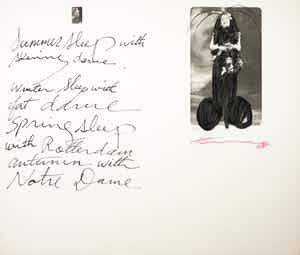 Summer sleep with
skinny dame.
Winter sleep with
fat dame
Spring sleep
with Rotterdam
autumn with
Notre Dame